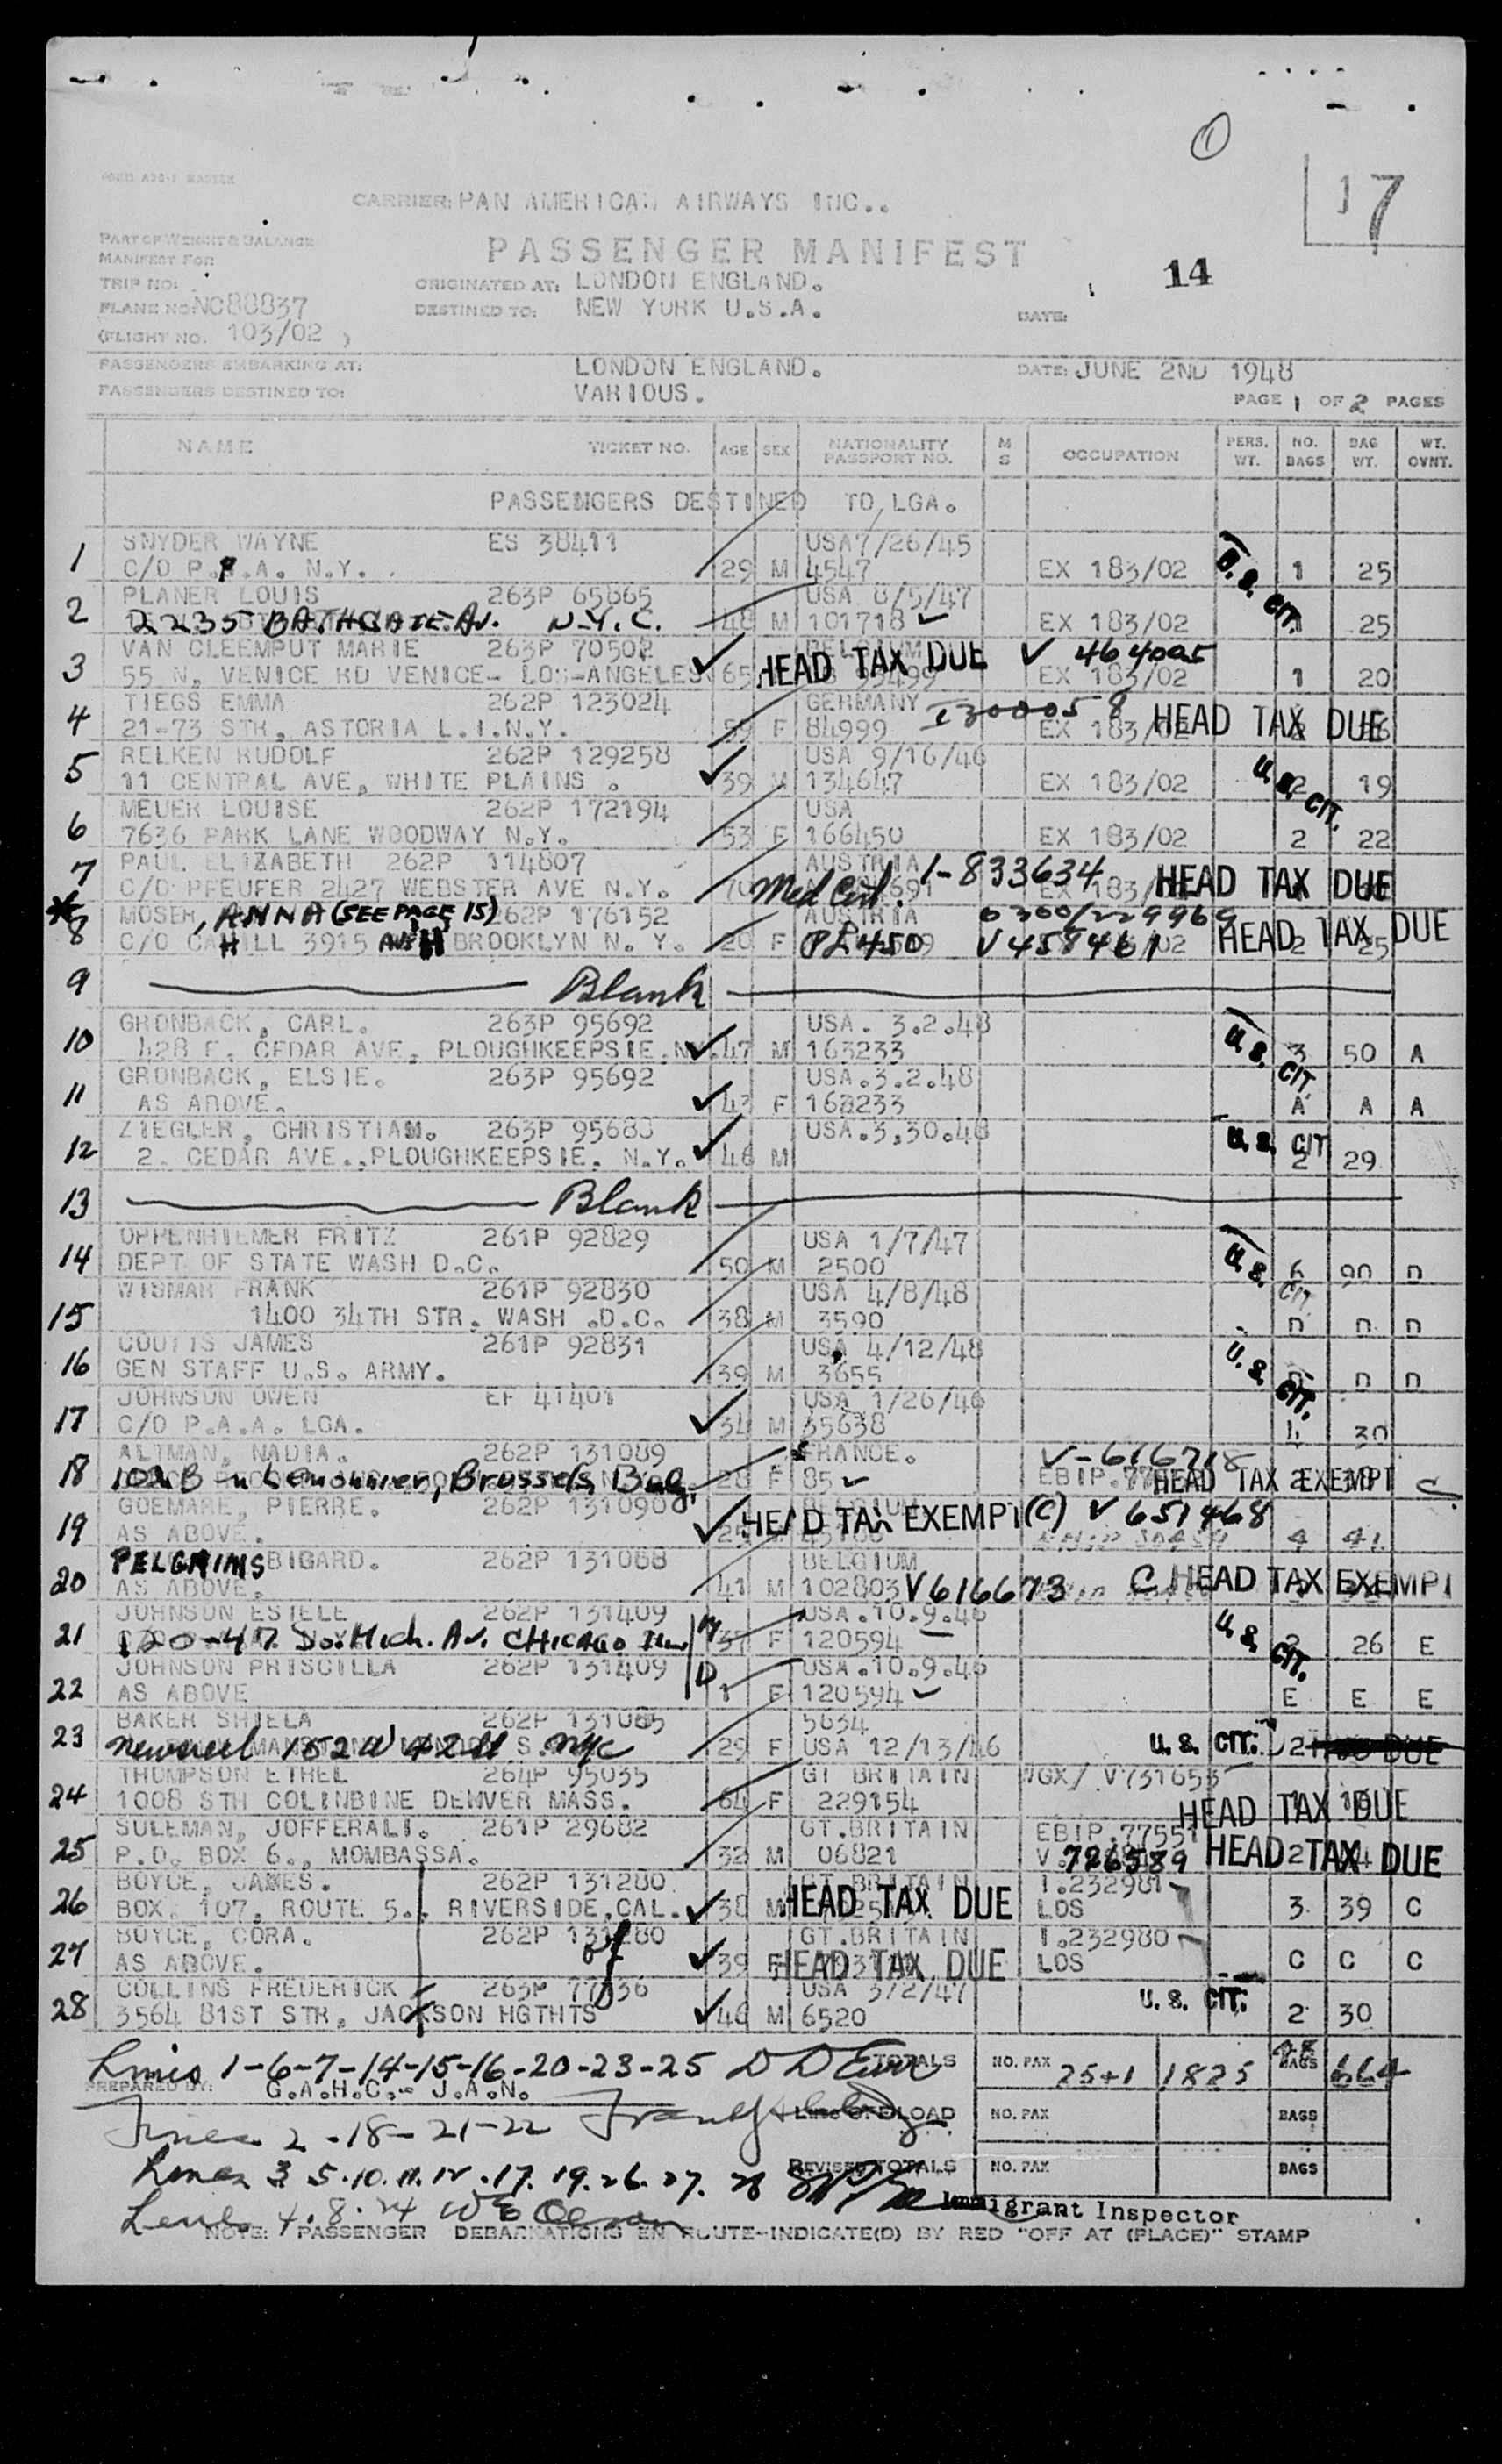 1
17
CARRIER: PAN AMERICAN AIRWAYS INC..
PART OF WEIGHT & BALANCE
MANIFEST FOR
PASSENGER MANIFEST
14
TRIP NO:
ORIGINATED AT: LONDON ENGLAND.
PLANE NO: NC88837
DESTINED TO: NEW YORK U.S.A.
DATE:
(FLIGHT NO. 103/02 )
PASSENGERS EMBARKING AT: LONDON ENGLAND. DATE: JUNE 2ND 1948
PASSENGERS DESTINED TO: VARIOUS.
PAGE 1 OF 2 PAGES
NAME TICKET NO. AGE SEX NATIONALITY PASSPORT NO. M S OCCUPATION PERS. WT. NO. BAGS BAG WT. WT. OVNT.
PASSENGERS DESTINED TO LGA.
SNYDER WAYNE ES 38411 USA 7/26/45
1 C/O P.A.A. N.Y. 29 M 4547 EX 183/02 U.S. CIT. 1 25
PLANER LOUIS 263P 65865 USA 8/5/47
2 2235 BATHGATE AV. N.Y.C. 48 M 101718 EX 183/02 25
VAN CLEEMPUT MARIE 263P 70502 HEAD TAX DUE V 464095
3 55 N. VENICE RD VENICE- LOS-ANGELES 65 EX 183/02 1 20
TIEGS EMMA 262P 123024 GERMANY I300058
4 21-73 STR. ASTORIA L.I.N.Y. 59 F 84999 EX 183/02 HEAD TAX DUE
RELKEN RUDOLF 262P 129258 USA 9/16/46
5 11 CENTRAL AVE, WHITE PLAINS . 39 M 134647 EX 183/02 U.S. CIT. 2 19
MEUER LOUISE 262P 172194 USA
6 7636 PARK LANE WOODWAY N.Y. 53 F 166450 EX 183/02 2 22
PAUL ELIZABETH 262P 114807 AUSTRIA 1-833634
7 C/O PFEUFER 2427 WEBSTER AVE N.Y. 70 Med Cert. HEAD TAX DUE
* MOSER, ANNA (SEE PAGE 15) 262P 176152 AUSTRIA 0300/229969
8 C/O CAHILL 3915 AVE H BROOKLYN N. Y. 20 F PL450 V458461 HEAD TAX DUE 2 25
9 Blank
GRONBACK, CARL. 263P 95692 USA. 3.2.48
10 428 E. CEDAR AVE, PLOUGHKEEPSIE.N 47 M 163233 U.S. CIT. 3 50 A
GRONBACK, ELSIE. 263P 95692 USA.3.2.48
11 AS ABOVE. 43 F 163233 A A A
ZIEGLER, CHRISTIAN. 263P 95683 USA.3.30.48
12 2. CEDAR AVE.,PLOUGHKEEPSIE. N.Y. 46 M U.S. CIT 2 29
13 Blank
OPPENHIEMER FRITZ 261P 92829 USA 1/7/47
14 DEPT OF STATE WASH D.C. 50 M 2500 U.S. CIT. 6 90 D
WISMAR FRANK 261P 92830 USA 4/8/48
15 1400 34TH STR. WASH .D.C. 38 M 3590 D D D
COUTTS JAMES 261P 92831 USA 4/12/48
16 GEN STAFF U.S. ARMY. 39 M 3655 U.S. CIT. D D
JOHNSON OWEN EF 41401 USA 1/26/46
17 C/O P.A.A. LGA. 34 M 35638 4 30
ALTMAN, NADIA. 262P 131089 FRANCE. V-616718
18 102 B n Lemonnier, Brussels, Belg. 28 F 85 EBIP. HEAD TAX EXEMPT C
GOEMARE, PIERRE. 262P 131090 HEAD TAX EXEMPT (C) V 651468
19 AS ABOVE. 4 41
PELGRIMS BIGARD. 262P 131088 BELGIUM
20 AS ABOVE. 41 M 102803 V616673 C HEAD TAX EXEMPT
JOHNSON ESTELE 262P 131409 M USA.10.9.46
21 120-47 So. Mich. Av. CHICAGO Ill. 37 F 120594 U.S. CIT. 2 26 E
JOHNSON PRISCILLA 262P 131409 D USA.10.9.46
22 AS ABOVE 1 F 120594 E E E
BAKER SHIELA 262P 131085 5634
23 newsreel 152 W 42 St NYC 29 F USA 12/13/46 U.S. CIT. 2 DUE
THOMPSON ETHEL 264P 95035 GT BRITAIN WGX/ V731653
24 1008 STH COLINBINE DENVER MASS. 64 F 229154 HEAD TAX DUE
SULEMAN, JOFFERALI. 261P 29682 GT.BRITAIN EBIP.77551
25 P.O. BOX 6., MOMBASSA. 32 M 06821 V. 726589 HEAD TAX DUE
BOYCE, JAMES. 262P 131280 GT.BRITAIN I.232981
26 BOX. 107, ROUTE 5., RIVERSIDE,CAL. 38 M HEAD TAX DUE LDS 3 39 C
BOYCE, CORA. 262P 131280 GT.BRITAIN I.232980
27 AS ABOVE. 39 F HEAD TAX DUE LDS C C C
COLLINS FREDERICK 263P 77036 USA 3/2/47
28 3564 81ST STR, JACKSON HGTHTS 46 M 6520 U.S. CIT. 2 30
Lines 1-6-7-14-15-16-20-23-25 TOTALS NO. PAX 25+1 1825 BAGS 664
PREPARED BY: G.A.H.C.- J.A.N.
Lines 2-18-21-22 NO. PAX BAGS
Lines 3 5.10.11.12.17.19.26.27.28 REVISED TOTALS NO. PAX BAGS
Immigrant Inspector
Lines 4.8.24
NOTE: PASSENGER DEBARKATIONS EN ROUTE-INDICATE(D) BY RED "OFF AT (PLACE)" STAMP